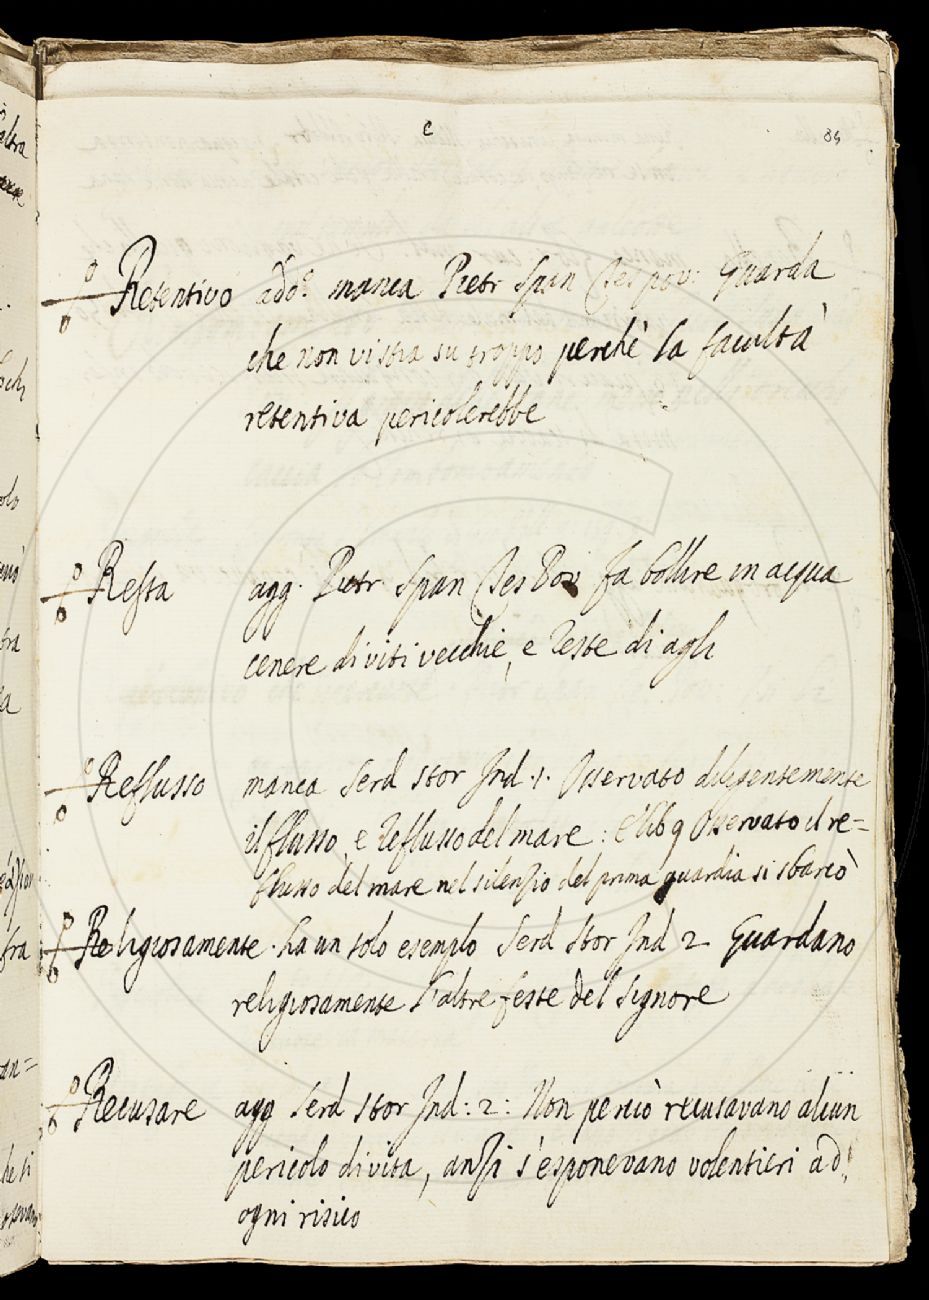 e
84
Retentivo add.º manca Pietr Span Tes pov: Guarda
che non vi stia su troppo perchè la facultà
retentiva pericolerebbe
Resta agg. Pietr Span Tes Pov fa bollire in acqua
cenere di viti vecchie, e reste di agli
Reflusso manca Serd Stor Ind 1. Osservato diligentemente
il flusso, e reflusso del mare: E lib 9 Osservato il re=
flusso del mare nel silenzio del prima guardia si sbarcò
Religiosamente. ha un solo esemplo Serd Stor Ind 2 Guardano
religiosamente l'altre feste del Signore
Recusare agg Serd Stor Ind: 2: Non perciò recusavano alcun
pericolo di vita, anzi s'esponevano volentieri ad
ogni risico